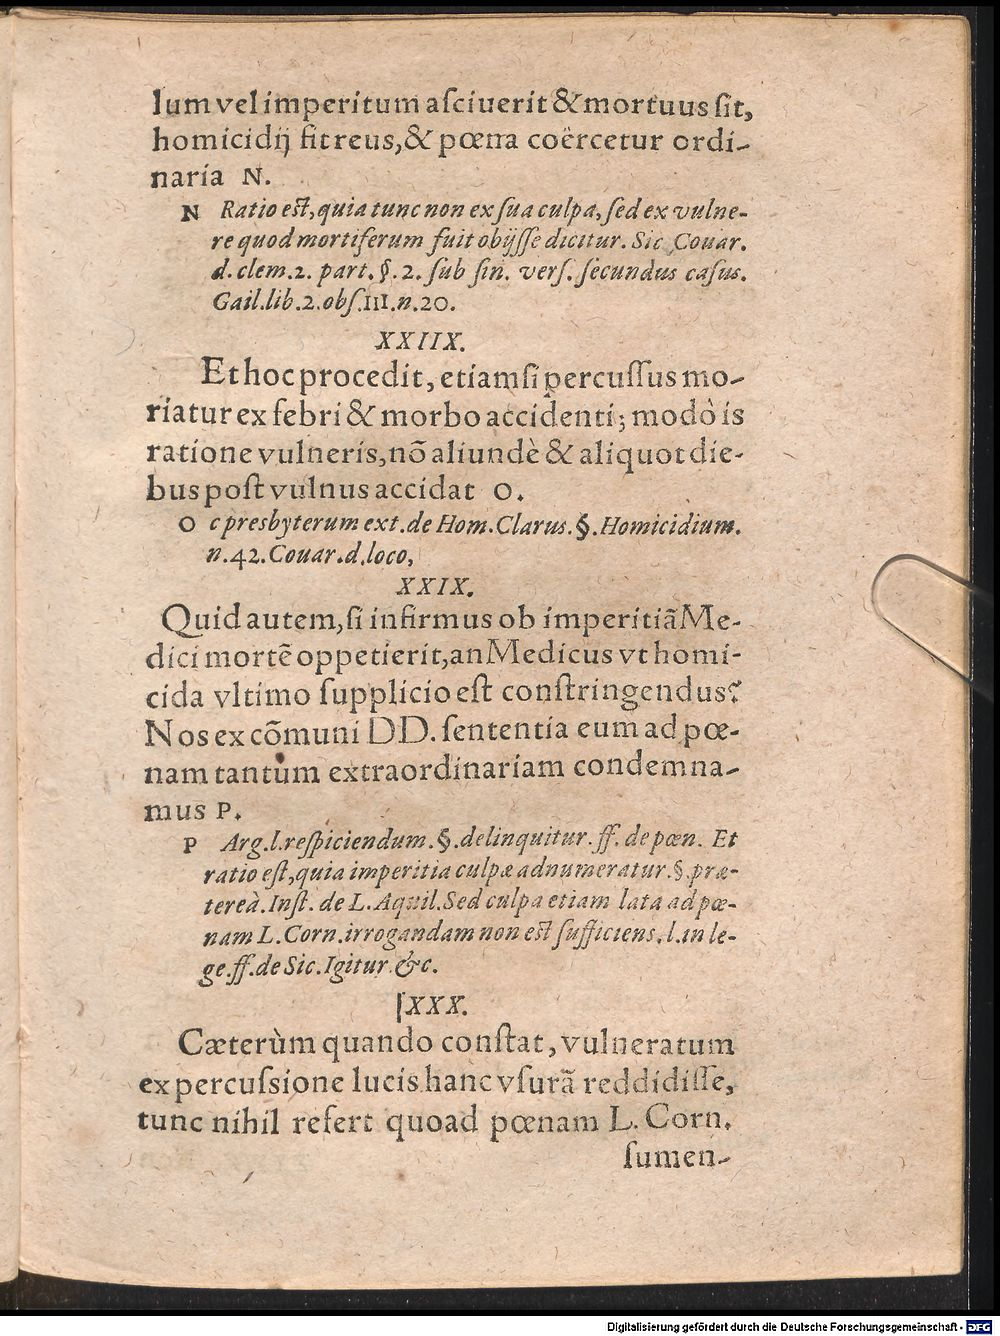 lum vel imperitum aſciuerit & mortuus ſit,
homicidij fit reus, & pœna coërcetur ordi-
naria N.
N Ratio eſt, quia tunc non ex ſua culpa, ſed ex vulne-
re quod mortiferum fuit obijſſe dicitur. Sic Couar.
d. clem. 2. part. §. 2. ſub fin. verſ. ſecundus caſus.
Gail. lib. 2. obſ. 111. n. 20.
XXIIX.
Et hoc procedit, etiamſi percuſſus mo-
riatur ex febri & morbo accidenti; modò is
ratione vulneris, nõ aliundè & aliquot die-
bus poſt vulnus accidat O.
O c presbyterum ext. de Hom. Clarus. §. Homicidium.
n. 42. Couar. d. loco,
XXIX.
Quid autem, ſi infirmus ob imperitiã Me-
dici mortẽ oppetierit, an Medicus vt homi-
cida vltimo ſupplicio eſt conſtringendus?
Nos ex cõmuni DD. ſententia eum ad pœ-
nam tantùm extraordinariam condemna-
mus P.
P Arg. l. reſpiciendum. §. delinquitur. ff. de pœn. Et
ratio eſt, quia imperitia culpæ adnumeratur. §. præ-
tereà. Inſt. de L. Aquil. Sed culpa etiam lata ad pœ-
nam L. Corn. irrogandam non eſt ſufficiens, l. in le-
ge. ff. de Sic. Igitur &c.
XXX.
Cæterùm quando conſtat, vulneratum
ex percuſsione lucis hanc vſurã reddidiſſe,
tunc nihil refert quoad pœnam L. Corn.
ſumen-
Digitalisierung gefördert durch die Deutsche Forschungsgemeinschaft - DFG